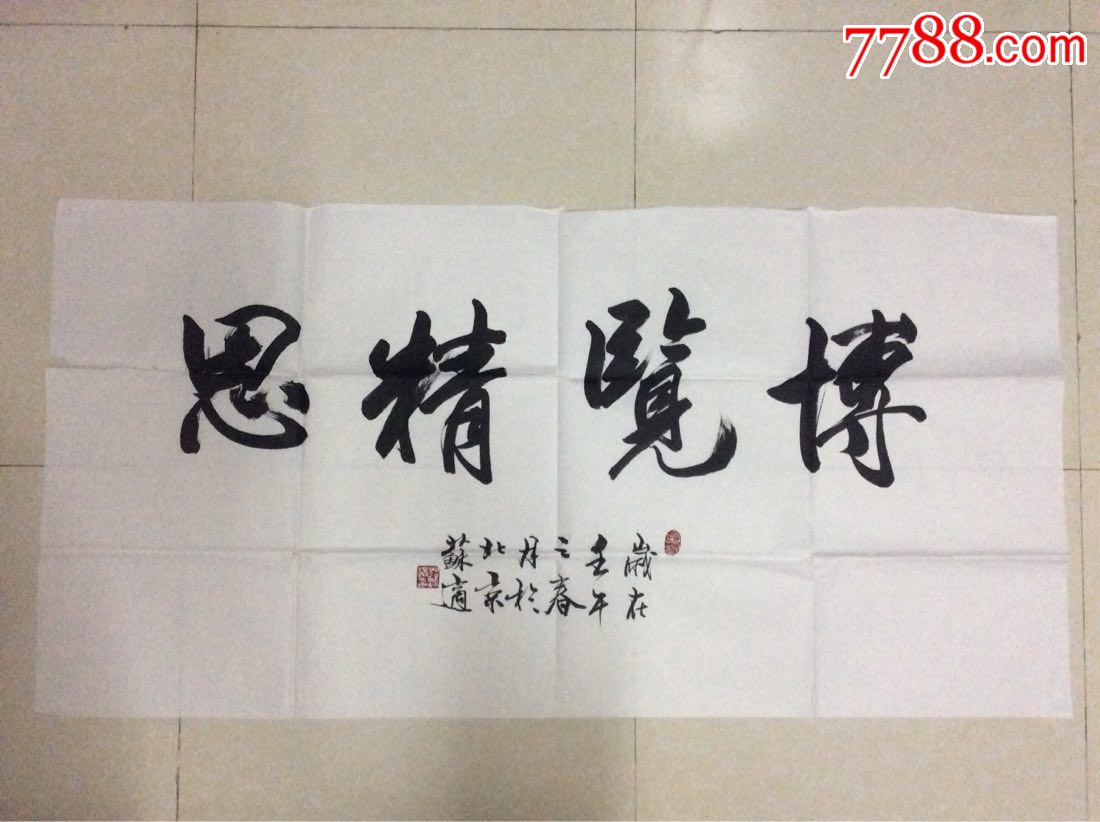 7788.com
博覽精思
歲在
壬午
之春
月於
北京
蘇適